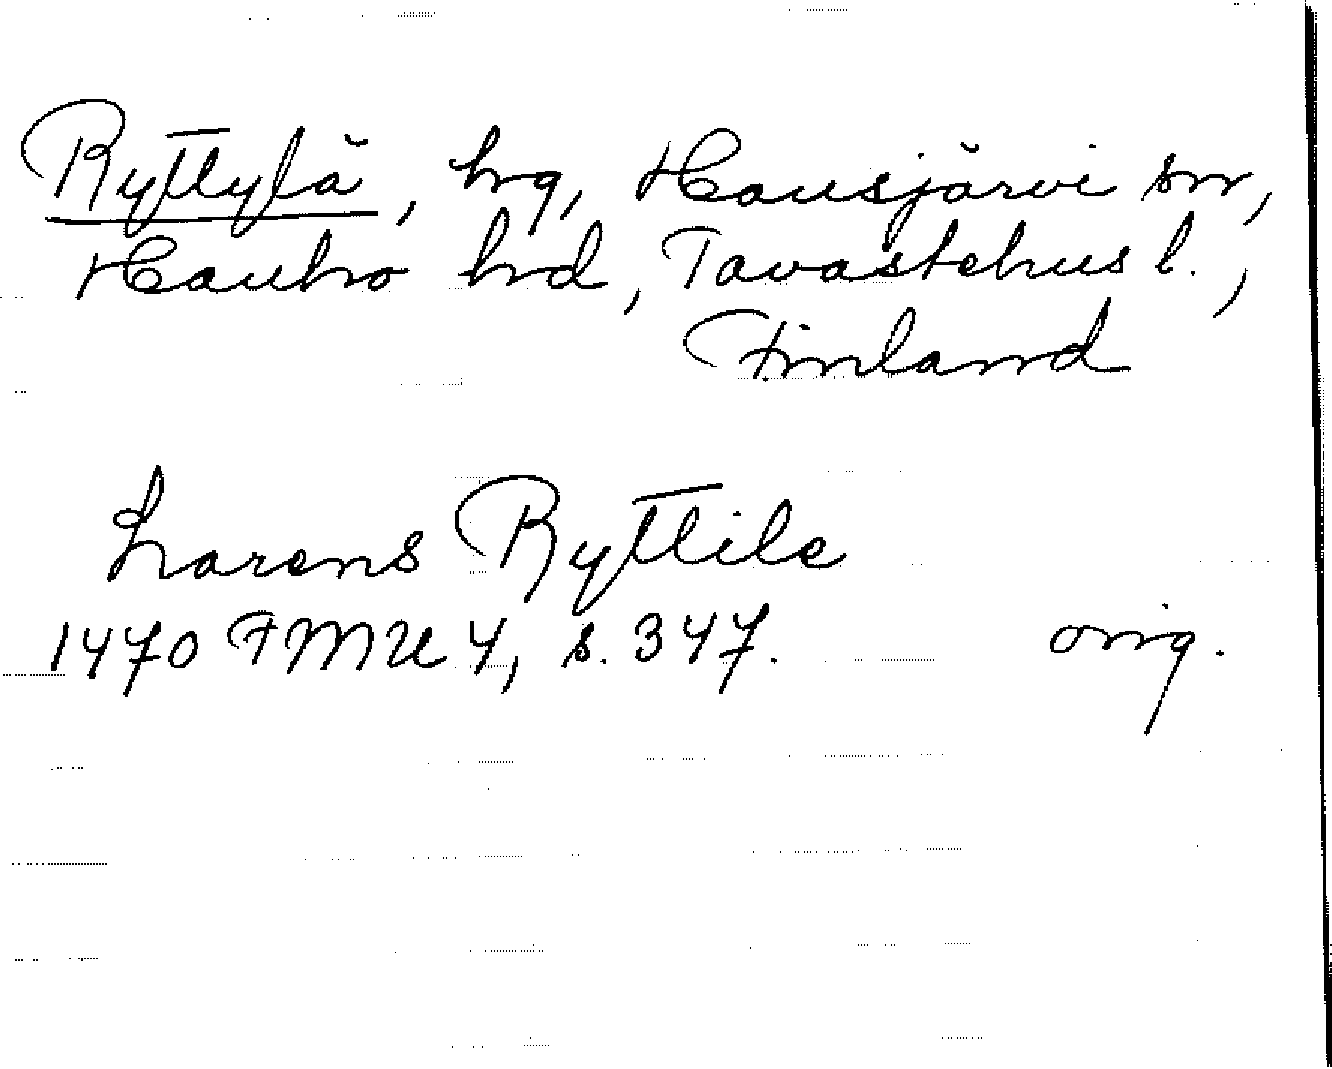 Ryttylä, hg, Hausjärvi sn,
Hauho hd, Tavastehus l.,
Finland
Larens Ryttile
1470 FMU 4, s. 347. orig.